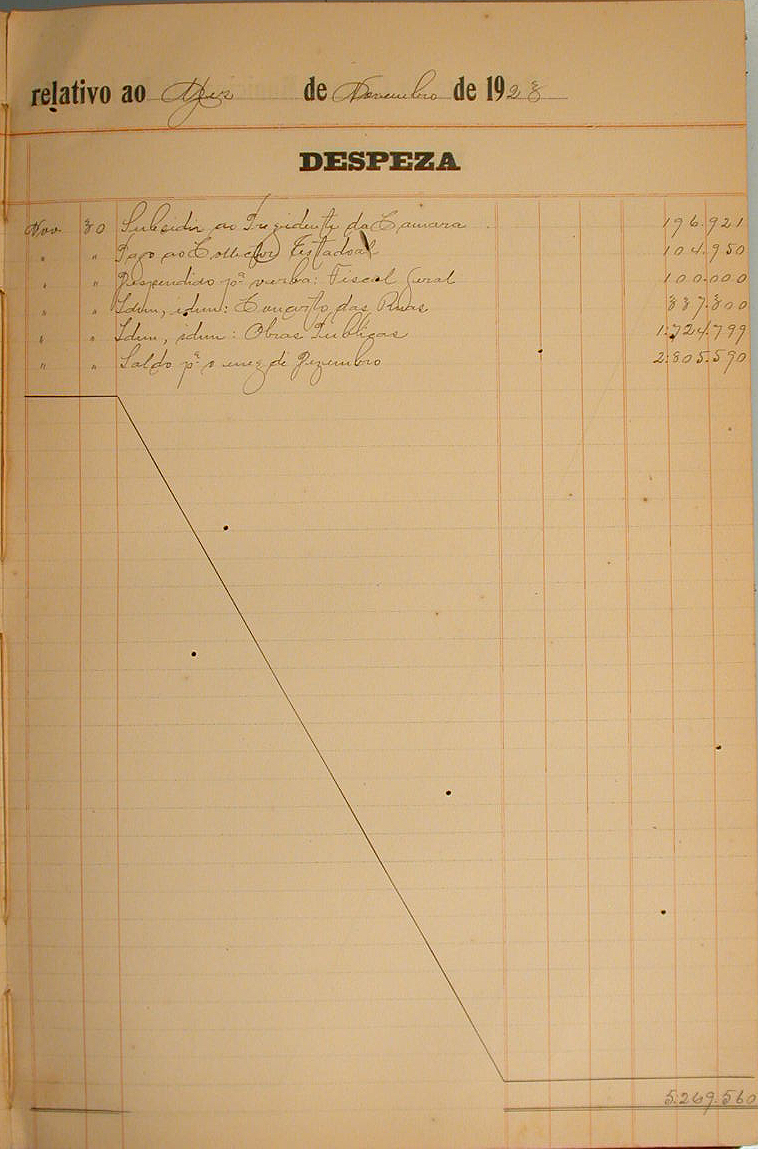 relativo ao Mez de Novembro de 1923
DESPEZA
Nov 30 Subsidio ao Prezidente da Camara 196.921
" " Pago ao Collector Estadoal 104.950
" " Despendido pª verba: Fiscal Geral 100.000
" " Idem, idem: Concerto das Ruas 337.300
" " Idem, idem: Obras Publicas 1:724.799
" " Saldo pª o mez de Dezembro 2:805.590
5:269.560